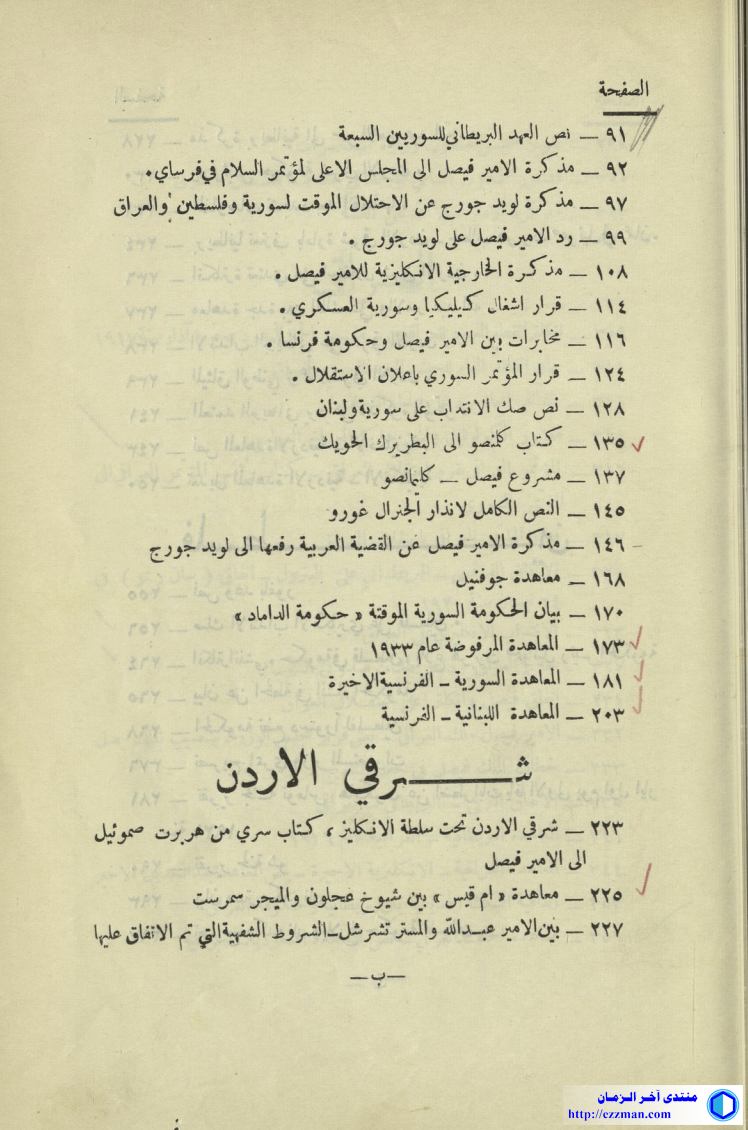 الصفحة
٩١ — نص العهد البريطاني للسوريين السبعة
٩٢ — مذكرة الامير فيصل الى المجلس الاعلى لمؤتمر السلام في فرساي.
٩٧ — مذكرة لويد جورج عن الاحتلال الموقت لسورية وفلسطين والعراق
٩٩ — رد الامير فيصل على لويد جورج .
١٠٨ — مذكرة الخارجية الانكليزية للامير فيصل .
١١٤ — قرار اشغال كيليكيا وسورية العسكري .
١١٦ — مخابرات بين الامير فيصل وحكومة فرنسا .
١٢٤ — قرار المؤتمر السوري باعلان الاستقلال .
١٢٨ — نص صك الانتداب على سورية ولبنان
١٣٥ — كتاب كلمنصو الى البطريرك الحويك
١٣٧ — مشروع فيصل — كليمانصو
١٤٥ — النص الكامل لانذار الجنرال غورو
١٤٦ — مذكرة الامير فيصل عن القضية العربية رفعها الى لويد جورج
١٦٨ — معاهدة جوفنيل
١٧٠ — بيان الحكومة السورية الموقتة « حكومة الداماد »
١٧٣ — المعاهدة المرفوضة عام ١٩٣٣
١٨١ — المعاهدة السورية - الفرنسية الاخيرة
٢٠٣ — المعاهدة اللبنانية - الفرنسية
شرقي الاردن
٢٢٣ — شرقي الاردن تحت سلطة الانكليز ، كتاب سري من هربرت صموئيل
الى الامير فيصل
٢٢٥ — معاهدة « ام قيس » بين شيوخ عجلون والميجر سمرست
٢٢٧ — بين الامير عبدالله والمستر تشرشل - الشروط الشفهية التي تم الاتفاق عليها
— ب —
منتدى آخر الزمان
http://ezzman.com